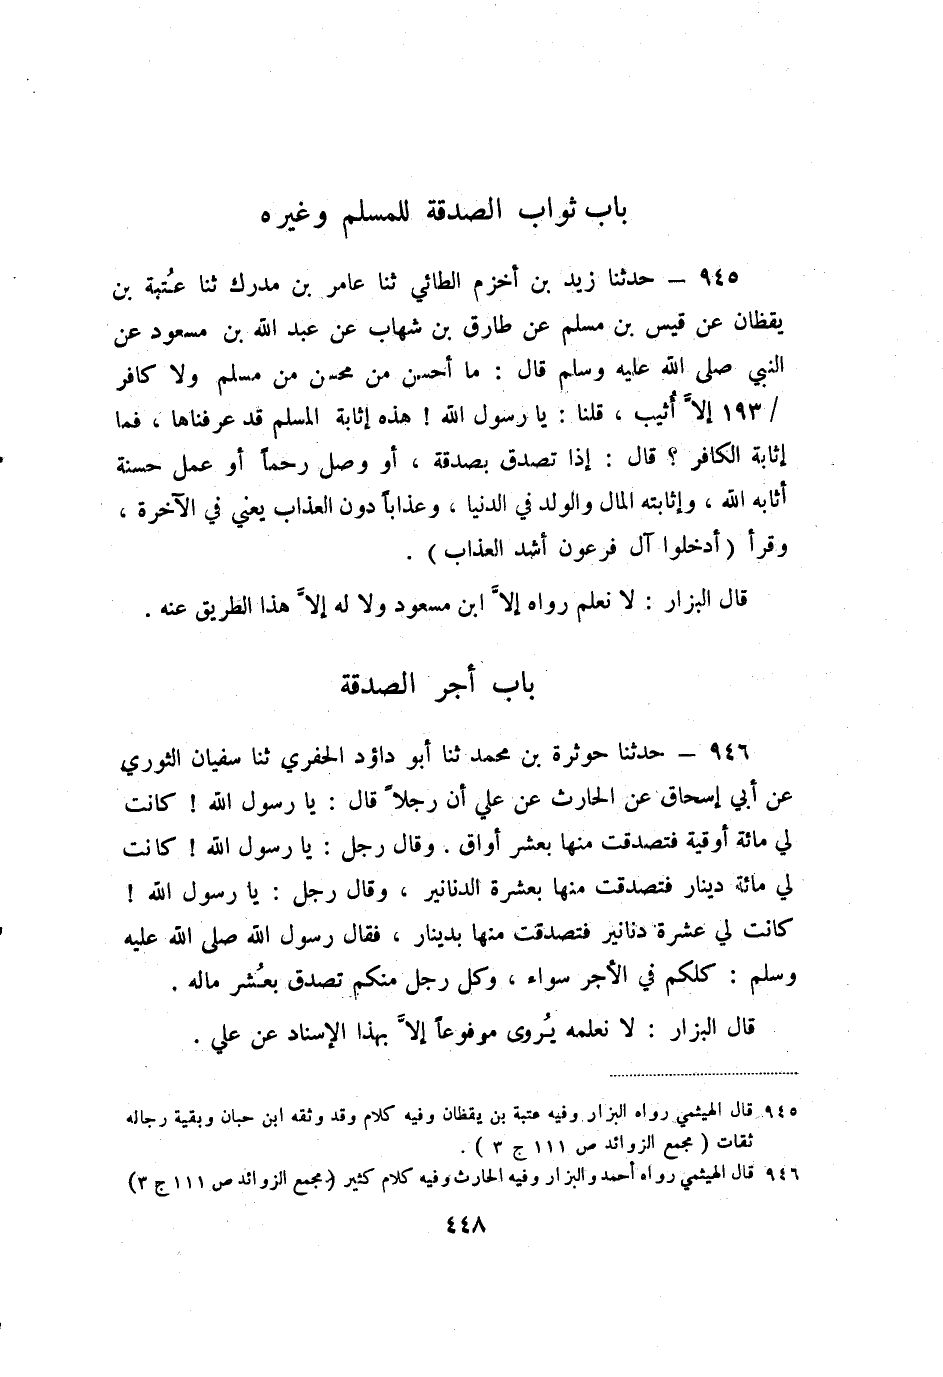 باب ثواب الصدقة للمسلم وغيره
٩٤٥ – حدثنا زيد بن أخزم الطائي ثنا عامر بن مدرك ثنا عُتبة بن
يقظان عن قيس بن مسلم عن طارق بن شهاب عن عبد الله بن مسعود عن
النبي صلى الله عليه وسلم قال : ما أحسن من محسن من مسلم ولا كافر
/١٩٣ إلاَّ أُثيب ، قلنا : يا رسول الله ! هذه إثابة المسلم قد عرفناها ، فما
إثابة الكافر ؟ قال : إذا تصدق بصدقة ، أو وصل رحماً أو عمل حسنة
أثابه الله ، وإثابته المال والولد في الدنيا ، وعذاباً دون العذاب يعني في الآخرة ،
وقرأ ( أدخلوا آل فرعون أشد العذاب ) .
قال البزار : لا نعلم رواه إلاَّ ابن مسعود ولا له إلاَّ هذا الطريق عنه .
باب أجر الصدقة
٩٤٦ – حدثنا حوثرة بن محمد ثنا أبو داؤد الحفري ثنا سفيان الثوري
عن أبي إسحاق عن الحارث عن علي أن رجلاً قال : يا رسول الله ! كانت
لي مائة أوقية فتصدقت منها بعشر أواق . وقال رجل : يا رسول الله ! كانت
لي مائة دينار فتصدقت منها بعشرة الدنانير ، وقال رجل : يا رسول الله !
كانت لي عشرة دنانير فتصدقت منها بدينار ، فقال رسول الله صلى الله عليه
وسلم : كلكم في الأجر سواء ، وكل رجل منكم تصدق بعُشر ماله .
قال البزار : لا نعلمه يُروى موفوعاً إلاَّ بهذا الإسناد عن علي .
٩٤٥ قال الهيثمي رواه البزار وفيه عتبة بن يقظان وفيه كلام وقد وثقه ابن حبان وبقية رجاله
ثقات ( مجمع الزوائد ص ١١١ ج ٣ ) .
٩٤٦ قال الهيثمي رواه أحمد والبزار وفيه الحارث وفيه كلام كثير ( مجمع الزوائد ص ١١١ ج ٣)
٤٤٨